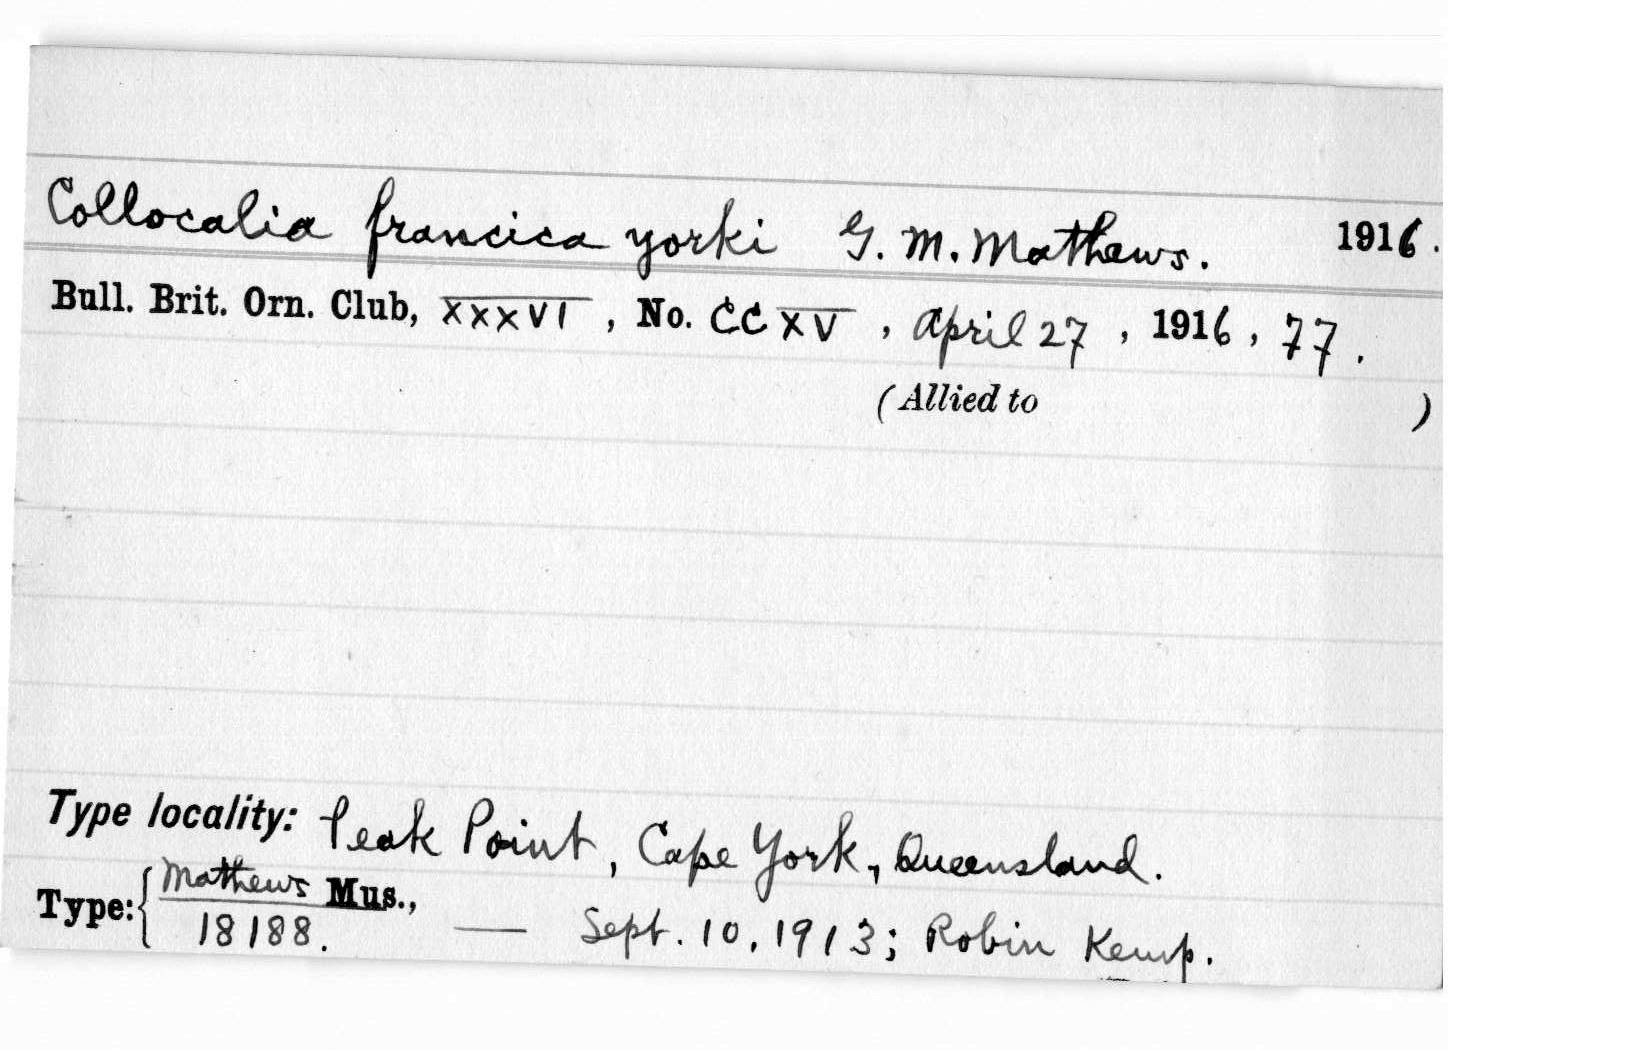 Collocalia francica yorki G. M. Mathews. 1916.
Bull. Brit. Orn. Club, XXXVI, No. CCXV, April 27, 1916, 77.
(Allied to )
Type locality: Peak Point, Cape York, Queensland.
Type: { Mathews Mus.,
18188. — Sept. 10, 1913; Robin Kemp.